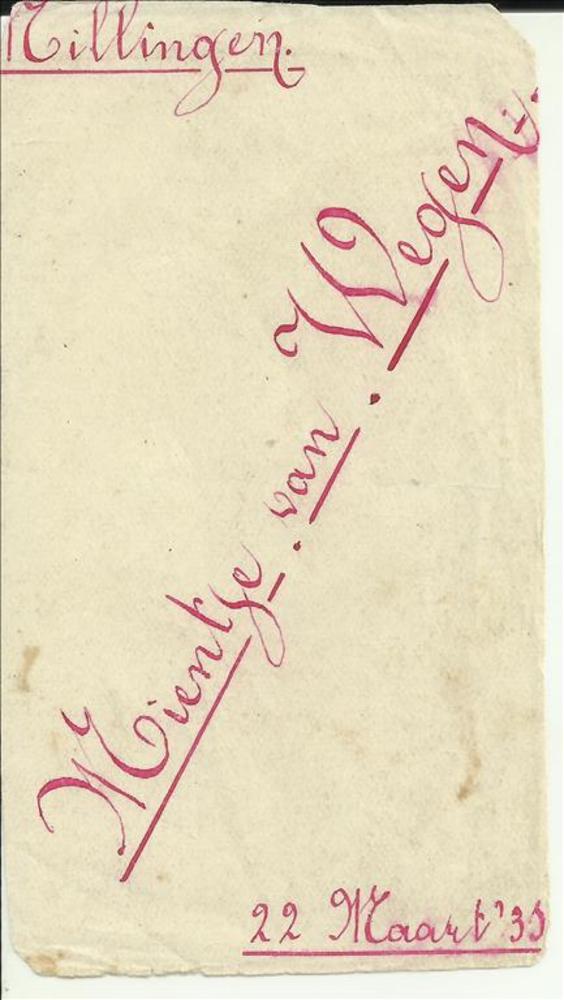 Millingen.
Mientje van Wegen.
22 Maart '35